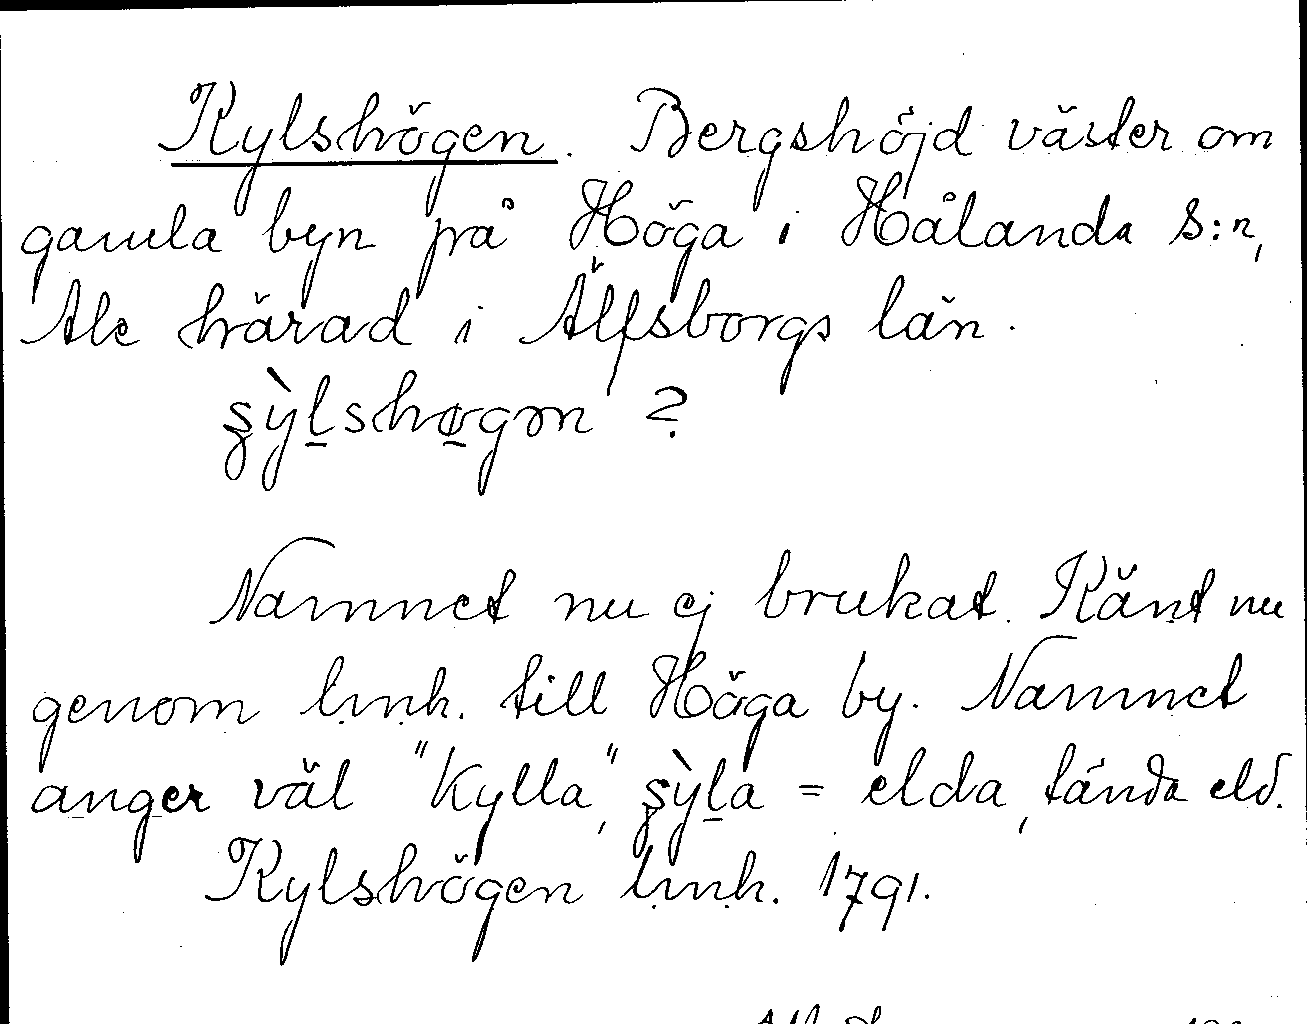 Kylshögen. Bergshöjd väster om
gamla byn på Höga i Hålanda s:n,
Ale härad i Älfsborgs län.
ʂỳl̲shø̲gən ?
Namnet nu ej brukat. Känt nu
genom lmh. till Höga by. Namnet
anger väl "Kylla", ʂỳl̲a = elda, tända eld.
Kylshögen lmh. 1791.